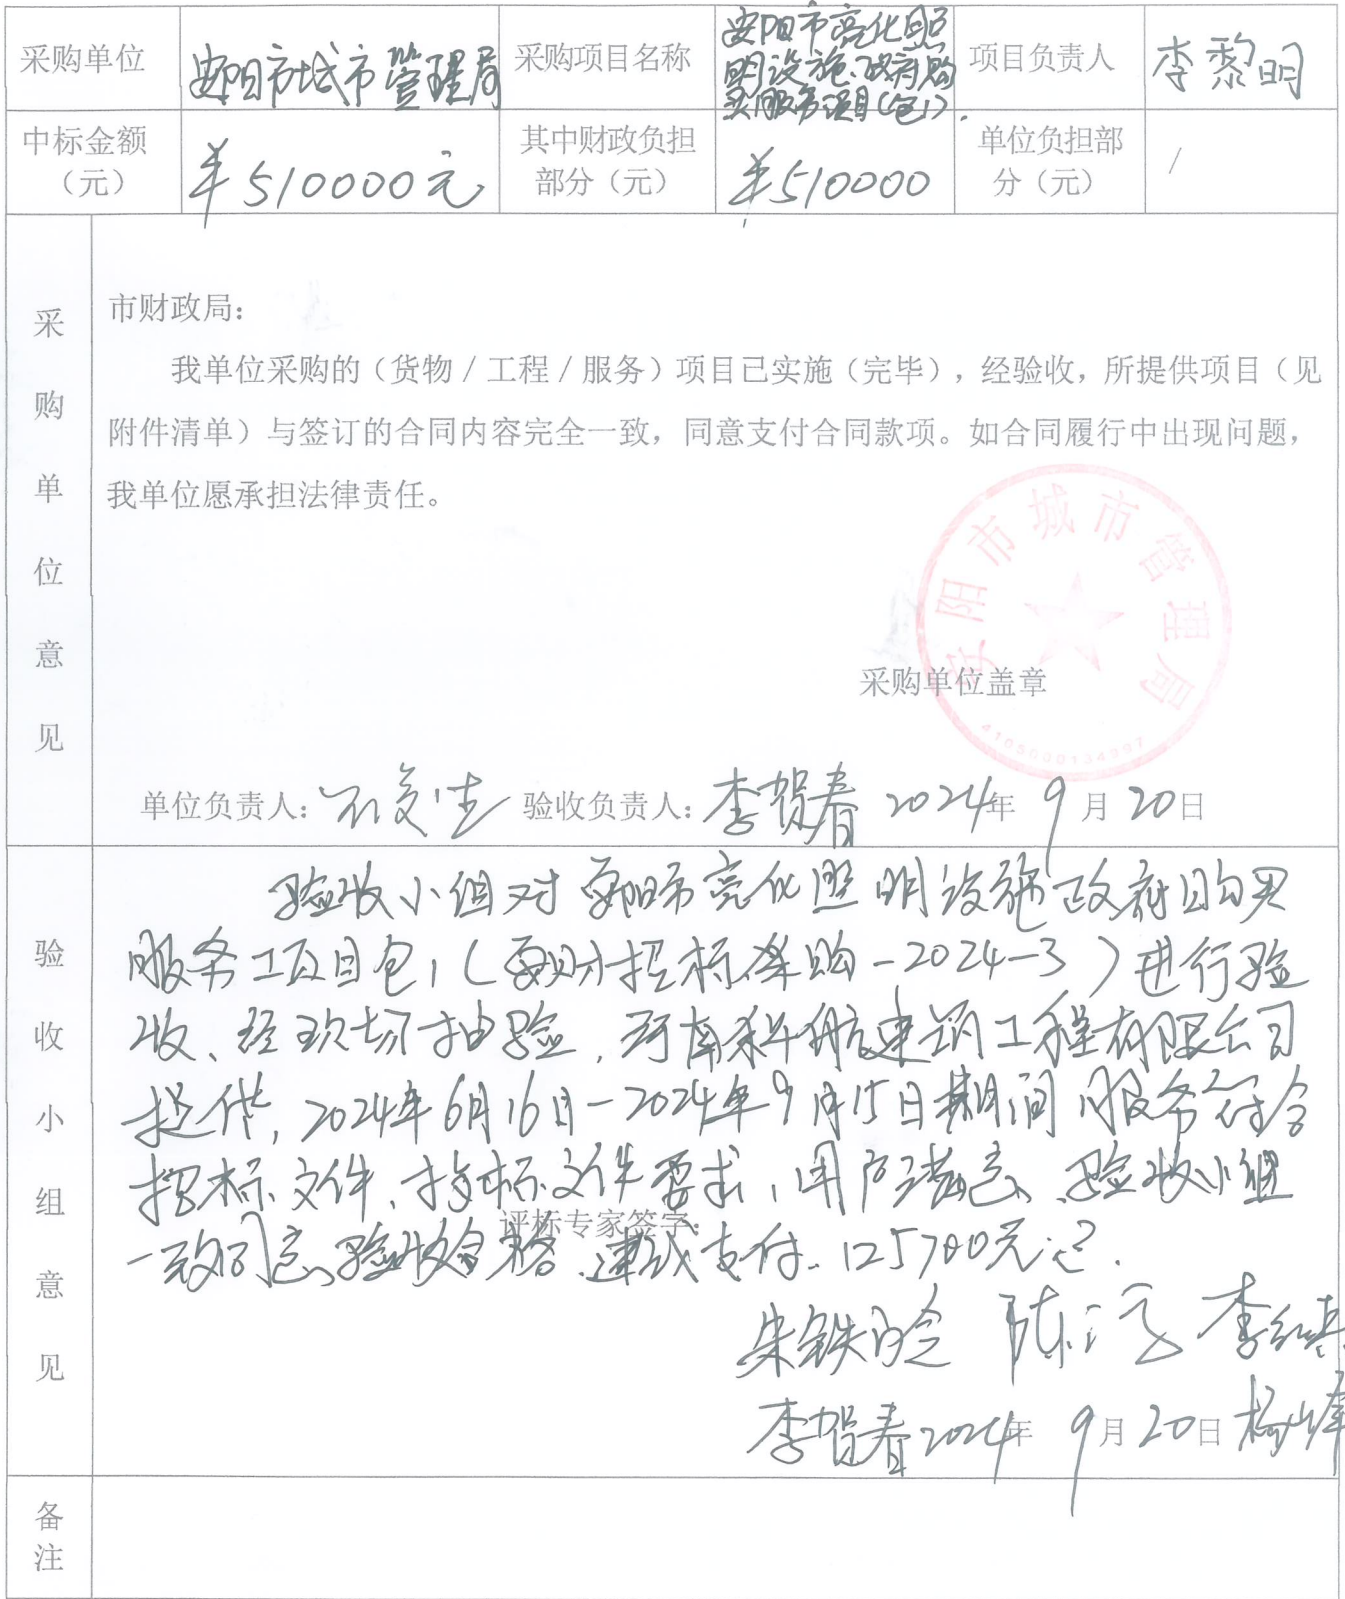 采购单位 安阳市城市管理局 采购项目名称 安阳市亮化照明设施政府购买服务项目(包1) 项目负责人 李黎明
中标金额（元） ¥510000元 其中财政负担部分（元） ¥510000 单位负担部分（元） /
采购单位意见
市财政局：
我单位采购的（货物/工程/服务）项目已实施（完毕），经验收，所提供项目（见
附件清单）与签订的合同内容完全一致，同意支付合同款项。如合同履行中出现问题，
我单位愿承担法律责任。
安阳市城市管理局
4105000134997
采购单位盖章
单位负责人： 验收负责人：李贺春 2024年9月20日
验收小组意见
验收小组对安阳市亮化照明设施政府购买
服务项目包1（安财招标采购-2024-3）进行验
收、经现场抽验，河南科航建筑工程有限公司
提供，2024年6月16日-2024年9月15日期间服务符合
招标文件、投标文件要求，用户满意、验收小组
评标专家签字：
一致同意验收合格.建议支付.125700元.
李贺春2024年9月20日 杨峰
备注